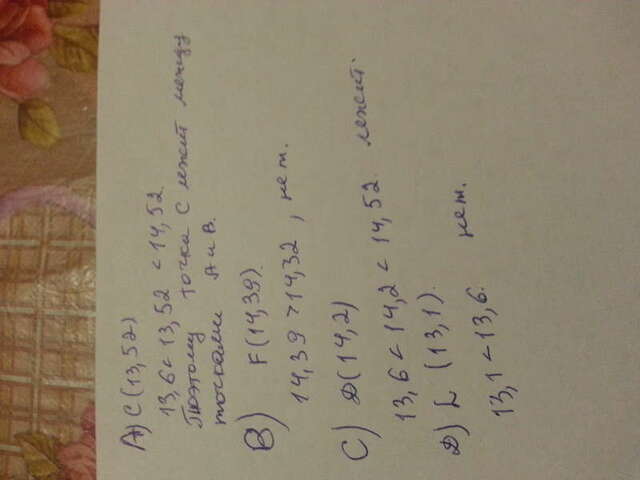 А) С(13,52)
13,6 < 13,52 < 14,52.
Поэтому точка С лежит между
точками А и В.
В) F(14,39).
14,39 > 14,32, нет.
С) D(14,2)
13,6 < 14,2 < 14,52. лежит.
D) L (13,1).
13,1 < 13,6. нет.